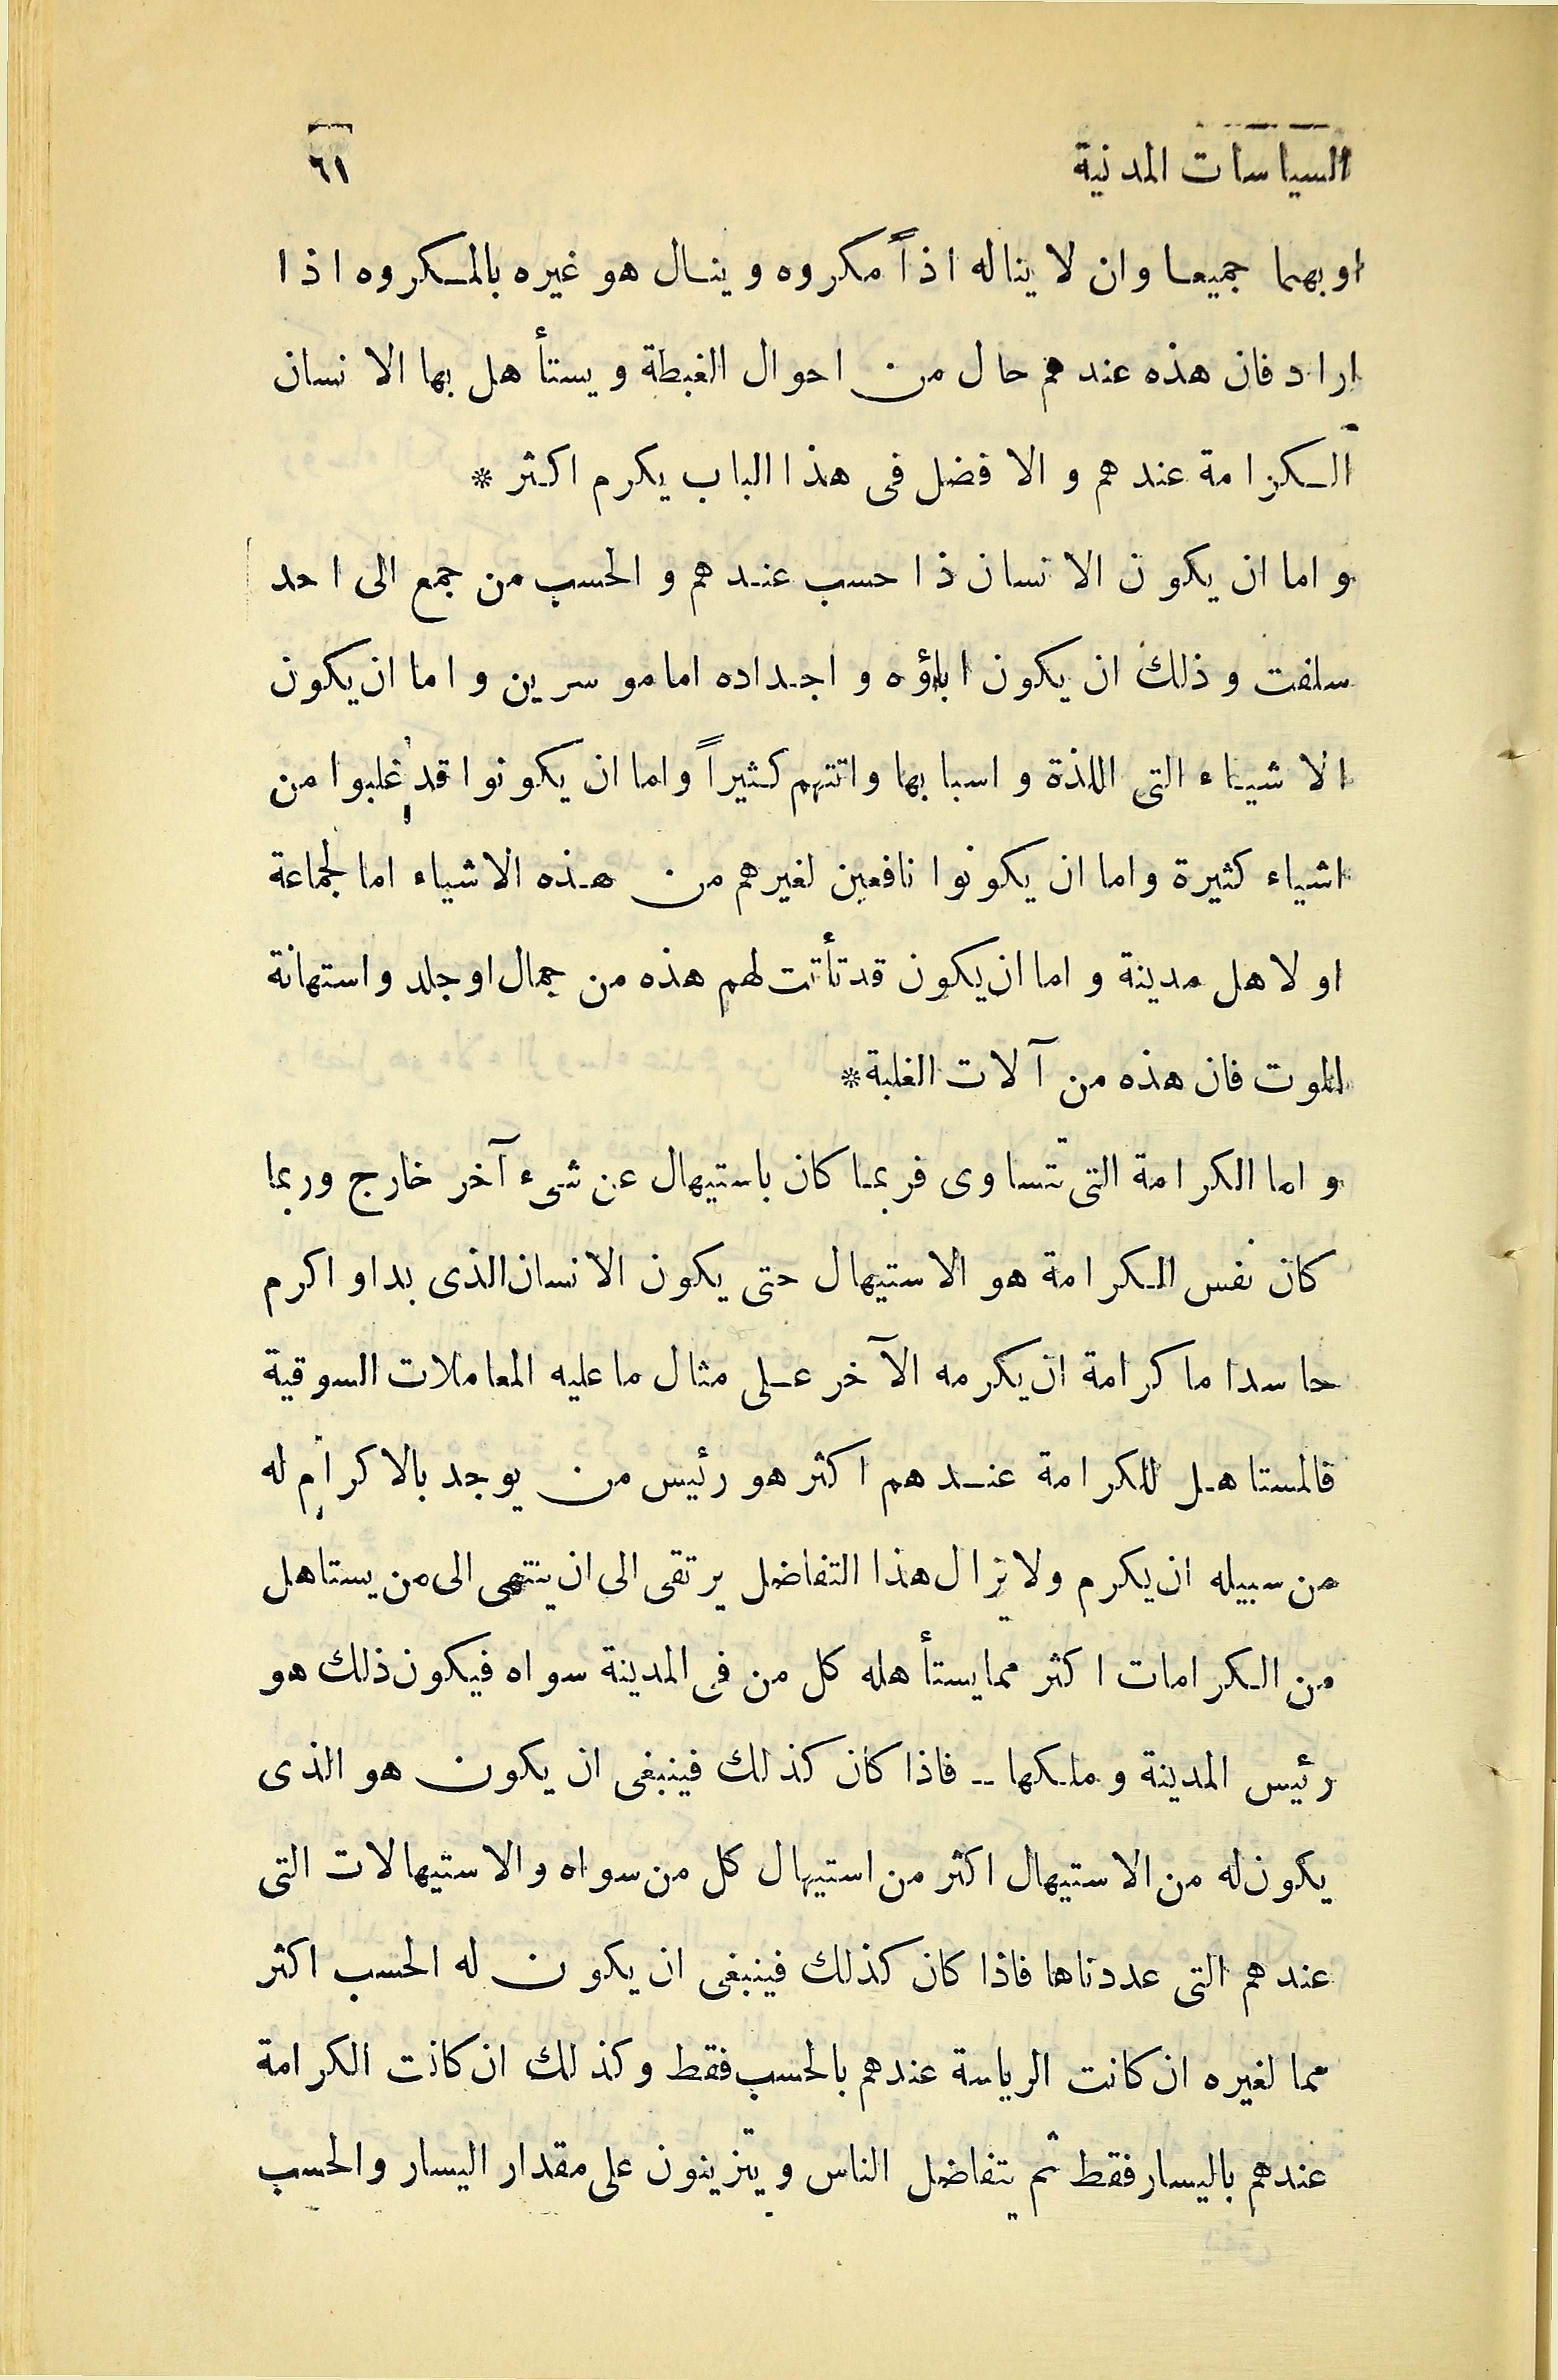 السياسات المدنية ٦١
او بهما جميعا وان لا يناله اذاً مكروه وينال هو غيره بالمكروه اذا
اراد فان هذه عندهم حال من احوال الغبطة ويستأهل بها الانسان
الكرامة عندهم والافضل فى هذا الباب يكرم اكثر *
واما ان يكون الانسان ذا حسب عندهم والحسب من جمع الى احد
سلفت وذلك ان يكون اباؤه واجداده اما موسرين واما ان يكون
الاشياء التى اللذة واسبابها واتتهم كثيراً واما ان يكونوا قد غلبوا من
اشياء كثيرة واما ان يكونوا نافعين لغيرهم من هذه الاشياء اما لجماعة
او لاهل مدينة واما ان يكون قد تأتت لهم هذه من جمال او جلد واستهانة
الموت فان هذه من آلات الغلبة *
واما الكرامة التى تتساوى فربما كان باستيهال عن شىء آخر خارج وربما
كان نفس الكرامة هو الاستيهال حتى يكون الانسان الذى بدا واكرم
حاسدا ما كرامة ان يكرمه الآخر على مثال ما عليه المعاملات السوقية
فالمستاهل للكرامة عندهم اكثر هو رئيس من يوجد بالاكرام له
من سبيله ان يكرم ولا يزال هذا التفاضل يرتقى الى ان ينتهى الى من يستاهل
من الكرامات اكثر مما يستأهله كل من فى المدينة سواه فيكون ذلك هو
رئيس المدينة وملكها -- فاذا كان كذلك فينبغى ان يكون هو الذى
يكون له من الاستيهال اكثر من استيهال كل من سواه والاستيهالات التى
عندهم التى عددناها فاذا كان كذلك فينبغى ان يكون له الحسب اكثر
مما لغيره ان كانت الرياسة عندهم بالحسب فقط وكذلك ان كانت الكرامة
عندهم باليسار فقط ثم يتفاضل الناس ويتزينون على مقدار اليسار والحسب